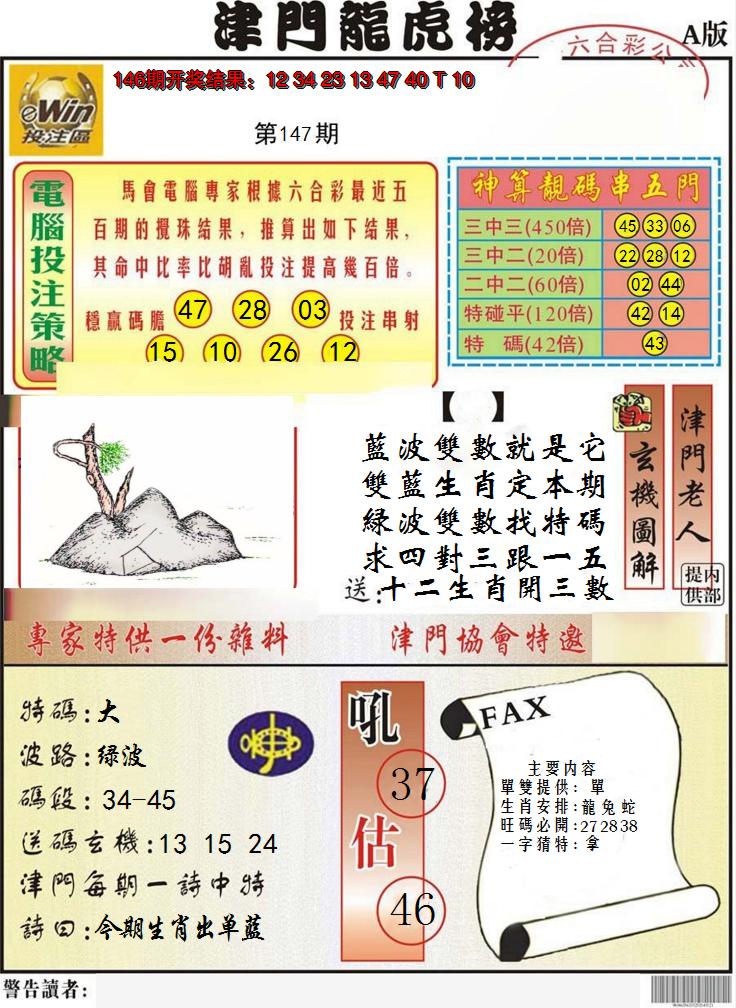 津門龍虎榜
A版
六合彩公
146期开奖结果：12 34 23 13 47 40 T 10
eWin
投注區
第147期
電腦投注策略
馬會電腦專家根據六合彩最近五
百期的攪珠结果，推算出如下结果，
其命中比率比胡亂投注提高幾百倍。
穩赢碼膽 47 28 03 投注串射
15 10 26 12
神算靚碼串五門
三中三(450倍) 45 33 06
三中二(20倍) 22 28 12
二中二(60倍) 02 44
特碰平(120倍) 42 14
特 碼(42倍) 43
【 】
藍波雙數就是它
雙藍生肖定本期
綠波雙數找特碼
求四對三跟一五
送:十二生肖開三數
玄機圖解
津門老人
内部提供
專家特供一份雜料
津門協會特邀
特碼:大
波路:绿波
碼段:34-45
送碼玄機:13 15 24
津門每期一詩中特
詩曰:今期生肖出单蓝
吼
37
估
46
FAX
主要内容
單雙提供：單
生肖安排:龍兔蛇
旺碼必開:272838
一字猜特:拿
警告讀者：